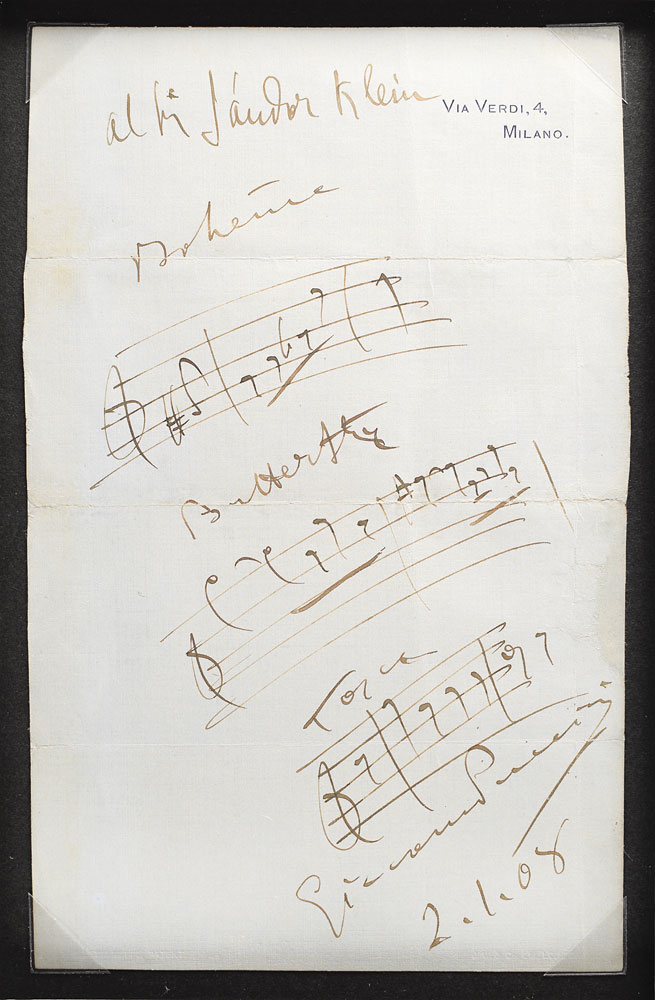 al Sig Sándor Klein
VIA VERDI, 4,
MILANO.
Bohème
Butterfly
Tosca
Giacomo Puccini
2.1.08